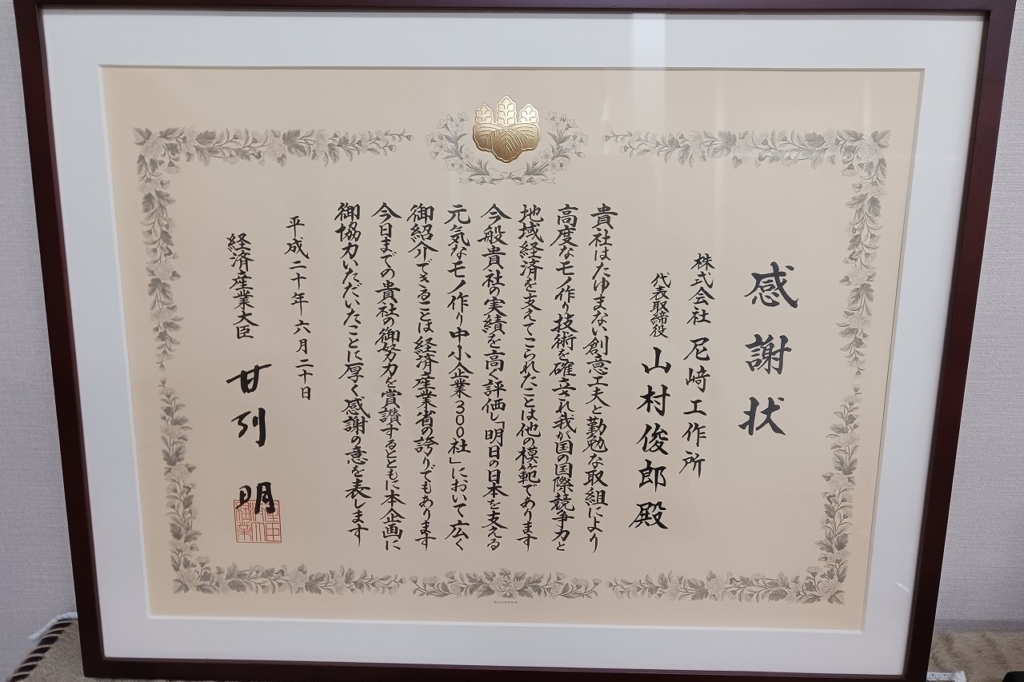 感謝状
株式会社 尼崎工作所
代表取締役 山村俊郎殿
貴社はたゆまない創意工夫と勤勉な取組により
高度なモノ作り技術を確立され我が国の国際競争力と
地域経済を支えてこられたことは他の模範であります
今般貴社の実績を高く評価し「明日の日本を支える
元気なモノ作り中小企業300社」において広く
御紹介できることは経済産業省の誇りでもあります
今日までの貴社の御努力を賞讃するとともに本企画に
御協力いただいたことに厚く感謝の意を表します
平成二十年六月二十日
経済産業大臣 甘利 明